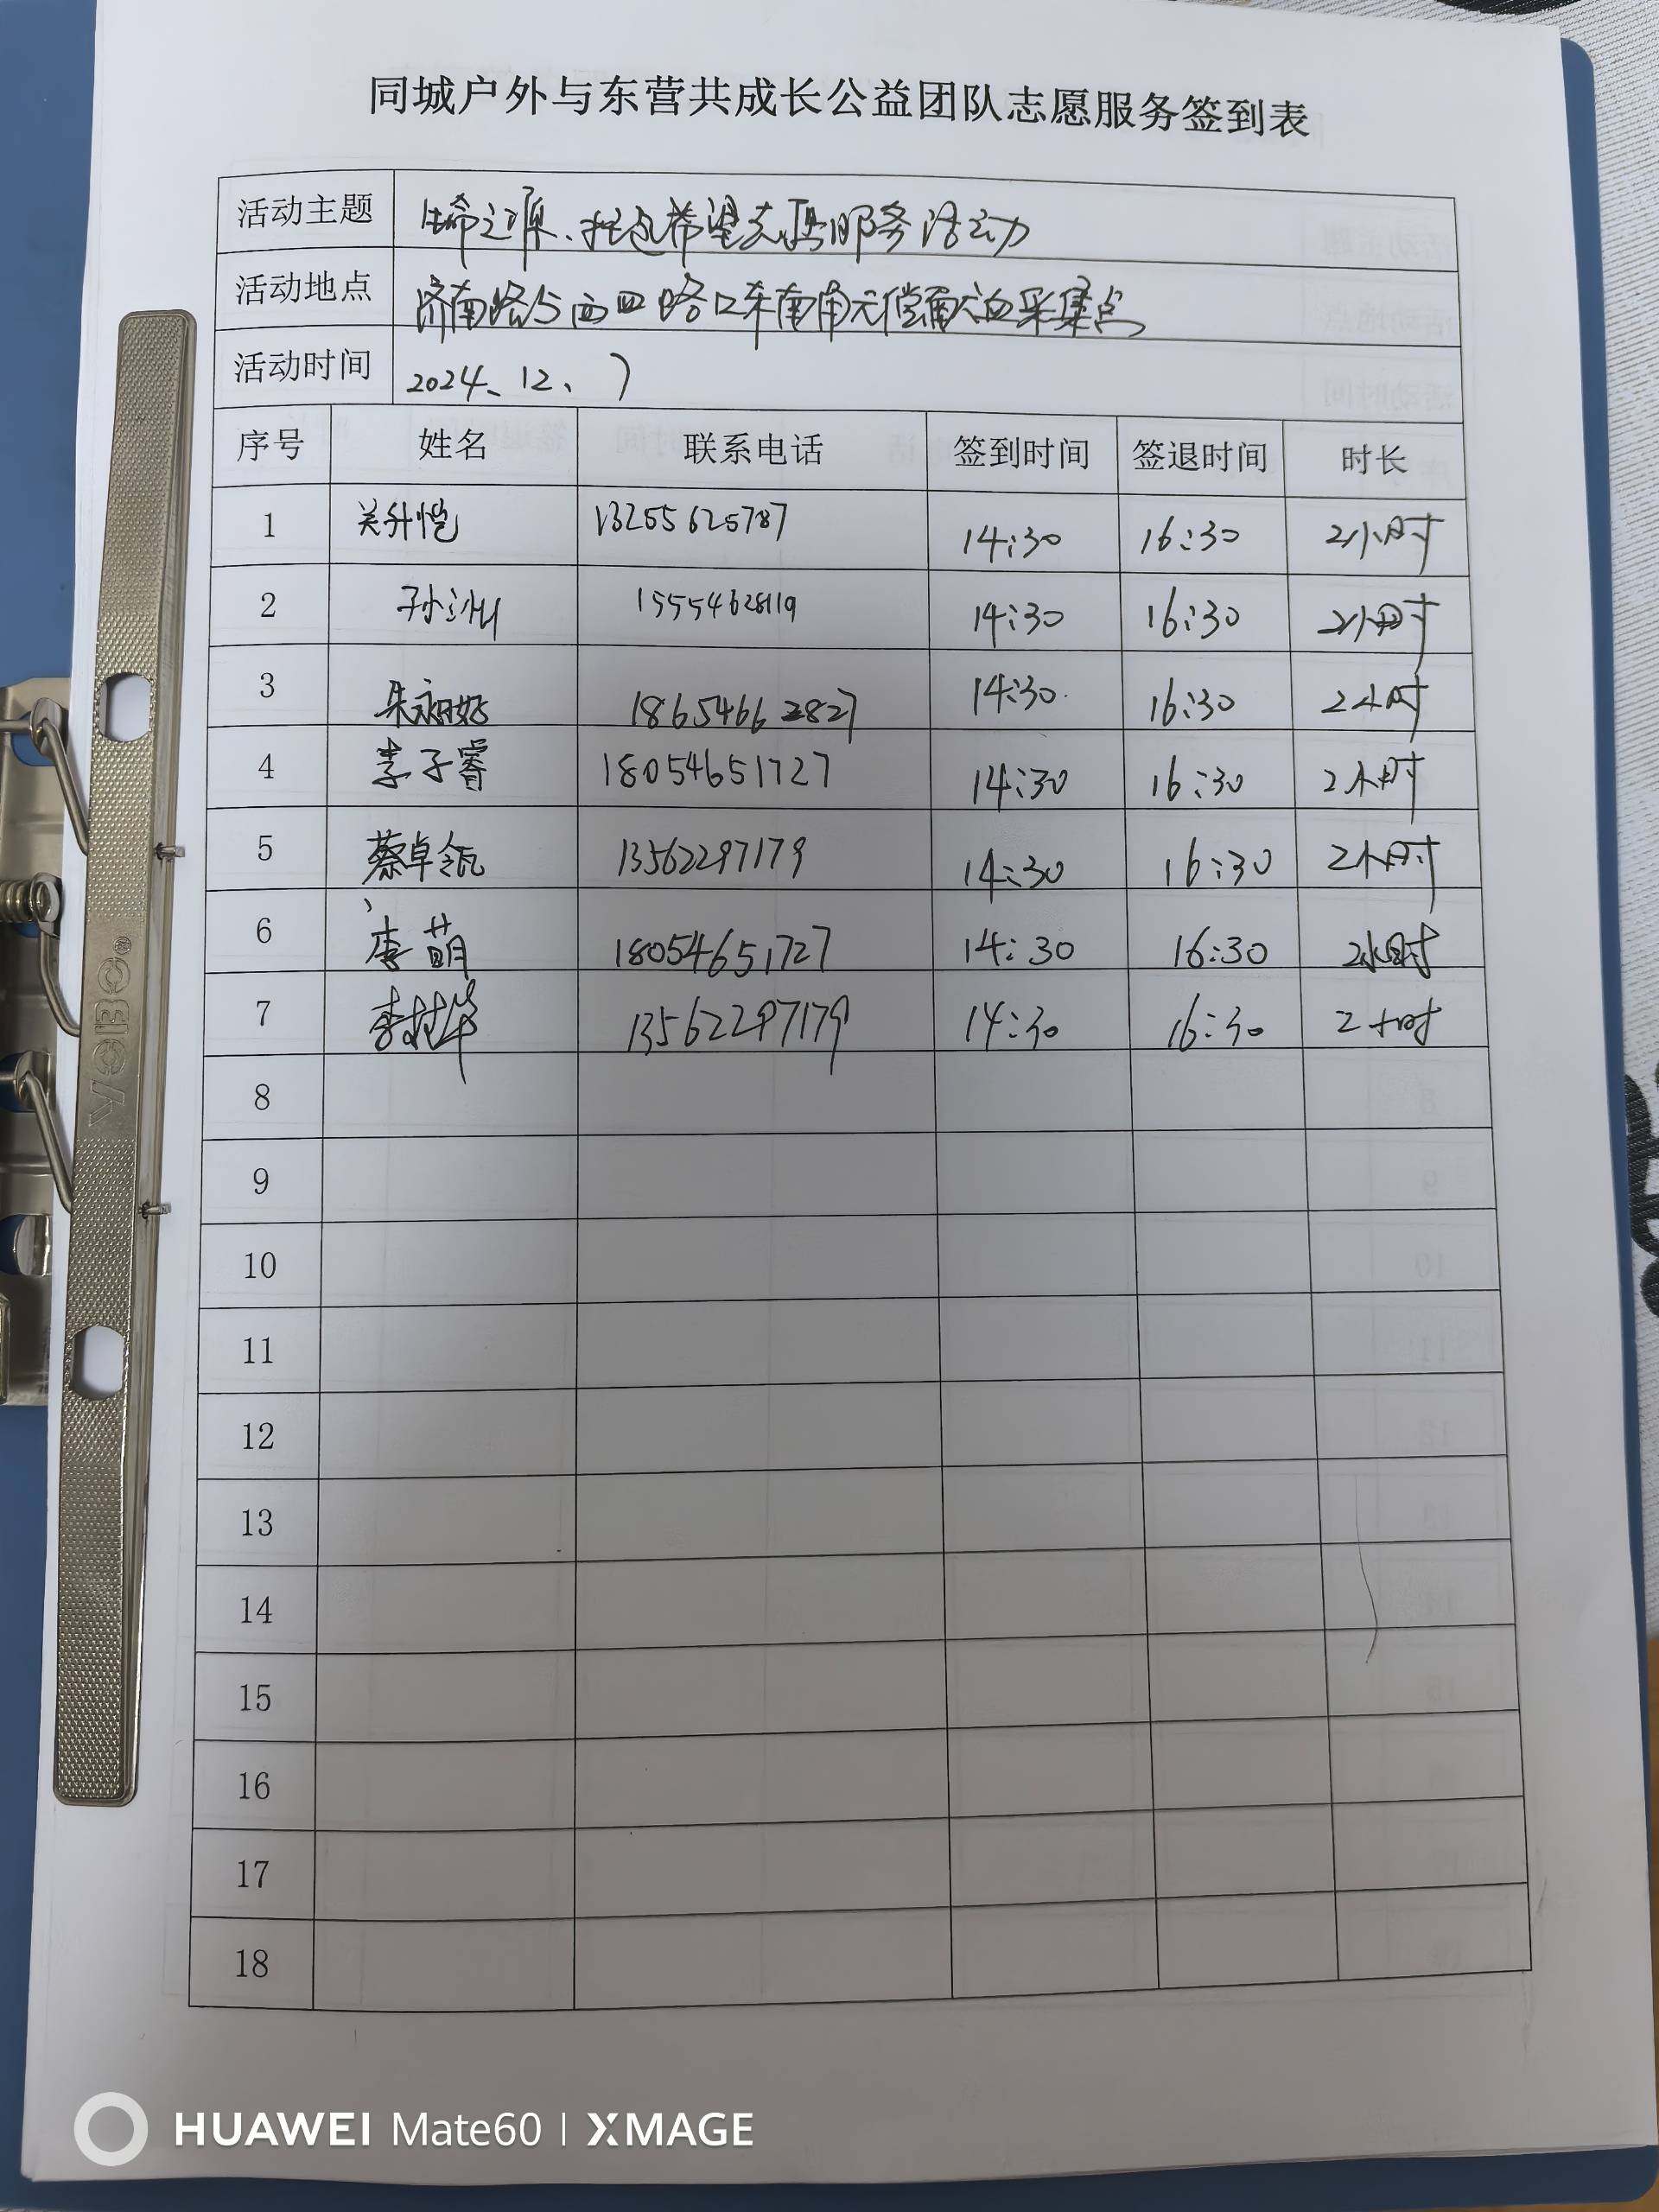 同城户外与东营共成长公益团队志愿服务签到表
活动主题 生命之源、托起希望志愿服务活动
活动地点 济南路与西四路口东南角无偿献血采集点
活动时间 2024、12、7
序号 姓名 联系电话 签到时间 签退时间 时长
1 关升恺 13255625787 14:30 16:30 2小时
2 孙 15554628119 14:30 16:30 2小时
3 朱 18654662827 14:30 16:30 2小时
4 李子睿 18054651727 14:30 16:30 2小时
5 蔡卓瓴 13562297179 14:30 16:30 2小时
6 李萌 18054651727 14:30 16:30 2小时
7 李 13562297179 14:30 16:30 2小时
8
9
10
11
12
13
14
15
16
17
18
KOBIC®
HUAWEI Mate60 | XMAGE